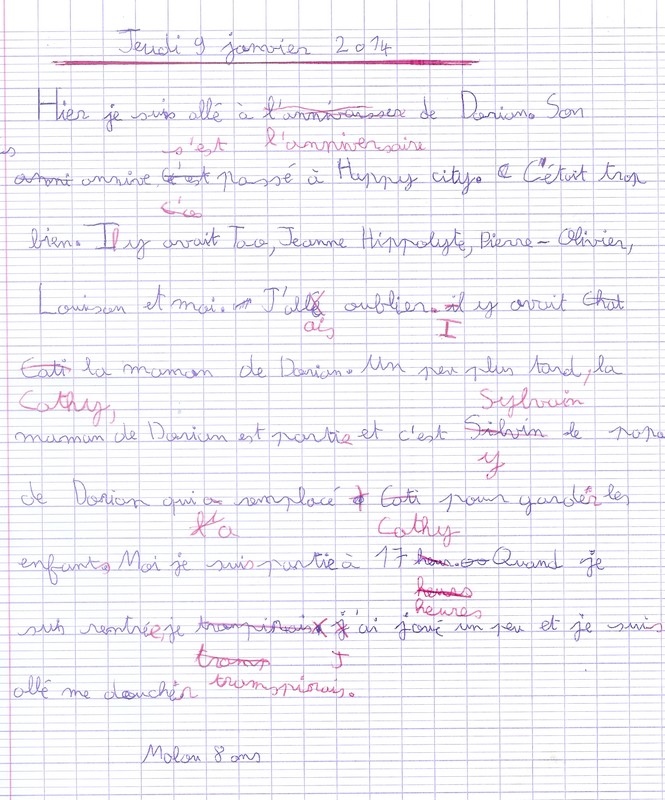 Jeudi 9 janvier 2014
Hier je suis allé à l'annivaisser de Dorian. Son
s'est l'anniversaire
anni annive C'est passé à Hyppy city. C C'était trop
bien. Il y avait Tao, Jeanne Hippolyte, Pierre-Olivier,
Louison et moi. J'allé oublier. il y avait Chat
ais I
Cati la maman de Dorian. Un peu plus tard, la
Cathy, Sylvain
maman de Dorian est partie et c'est Silvin le papa
y
de Dorian qui a remplacé Cati pour garder les
l'a Cathy
enfants, Moi je suis partie à 17 Quand je
heurs
heures
suis rentrée, je transpirais j'ai joué un peu et je suis
trans J
allé me doucher transpirais.
Malou 8 ans